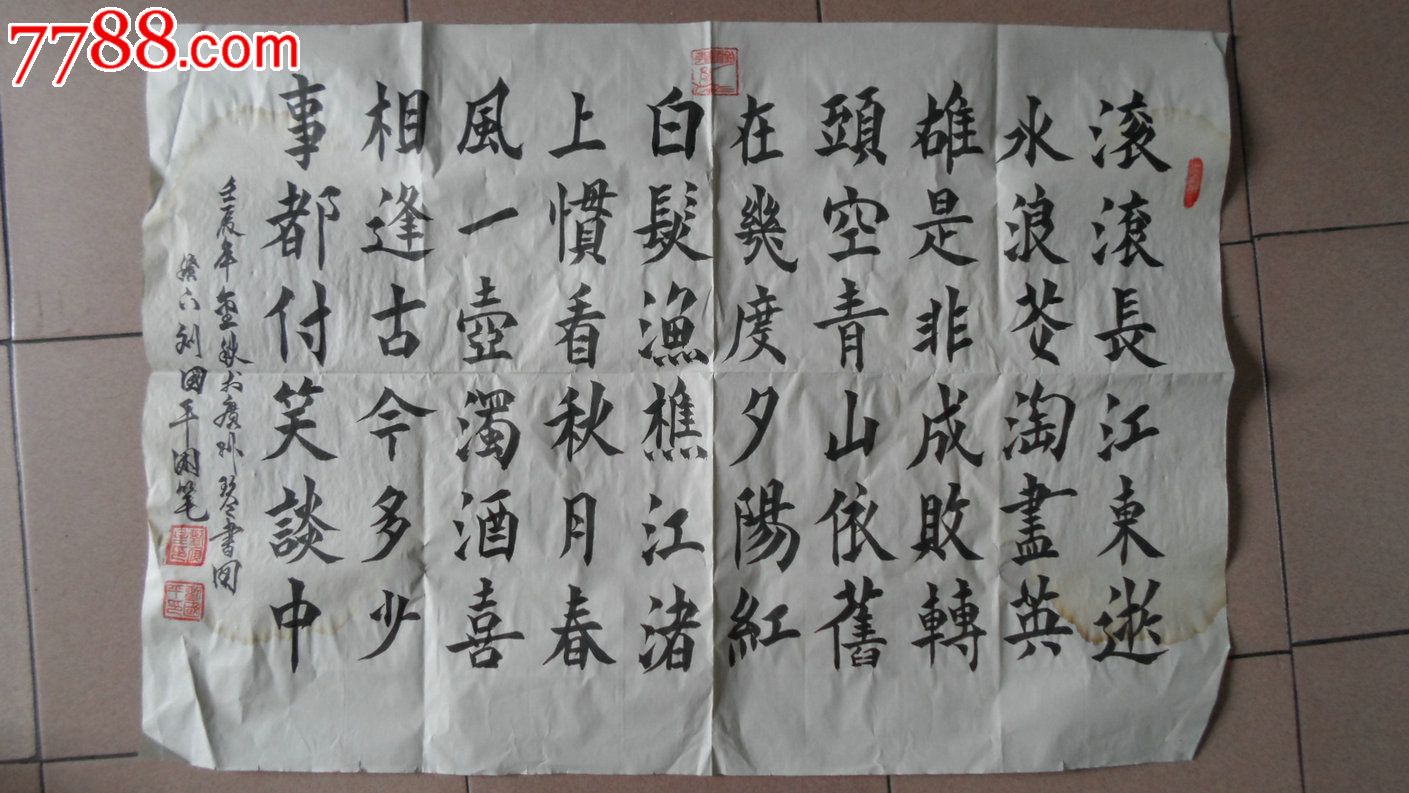 7788.com
滚滚長江東逝
水浪花淘盡英
雄是非成敗轉
頭空青山依舊
在幾度夕陽紅
白髮漁樵江渚
上慣看秋月春
風一壺濁酒喜
相逢古今多少
事都付笑談中
壬辰年金秋於琴書閣
刘國平